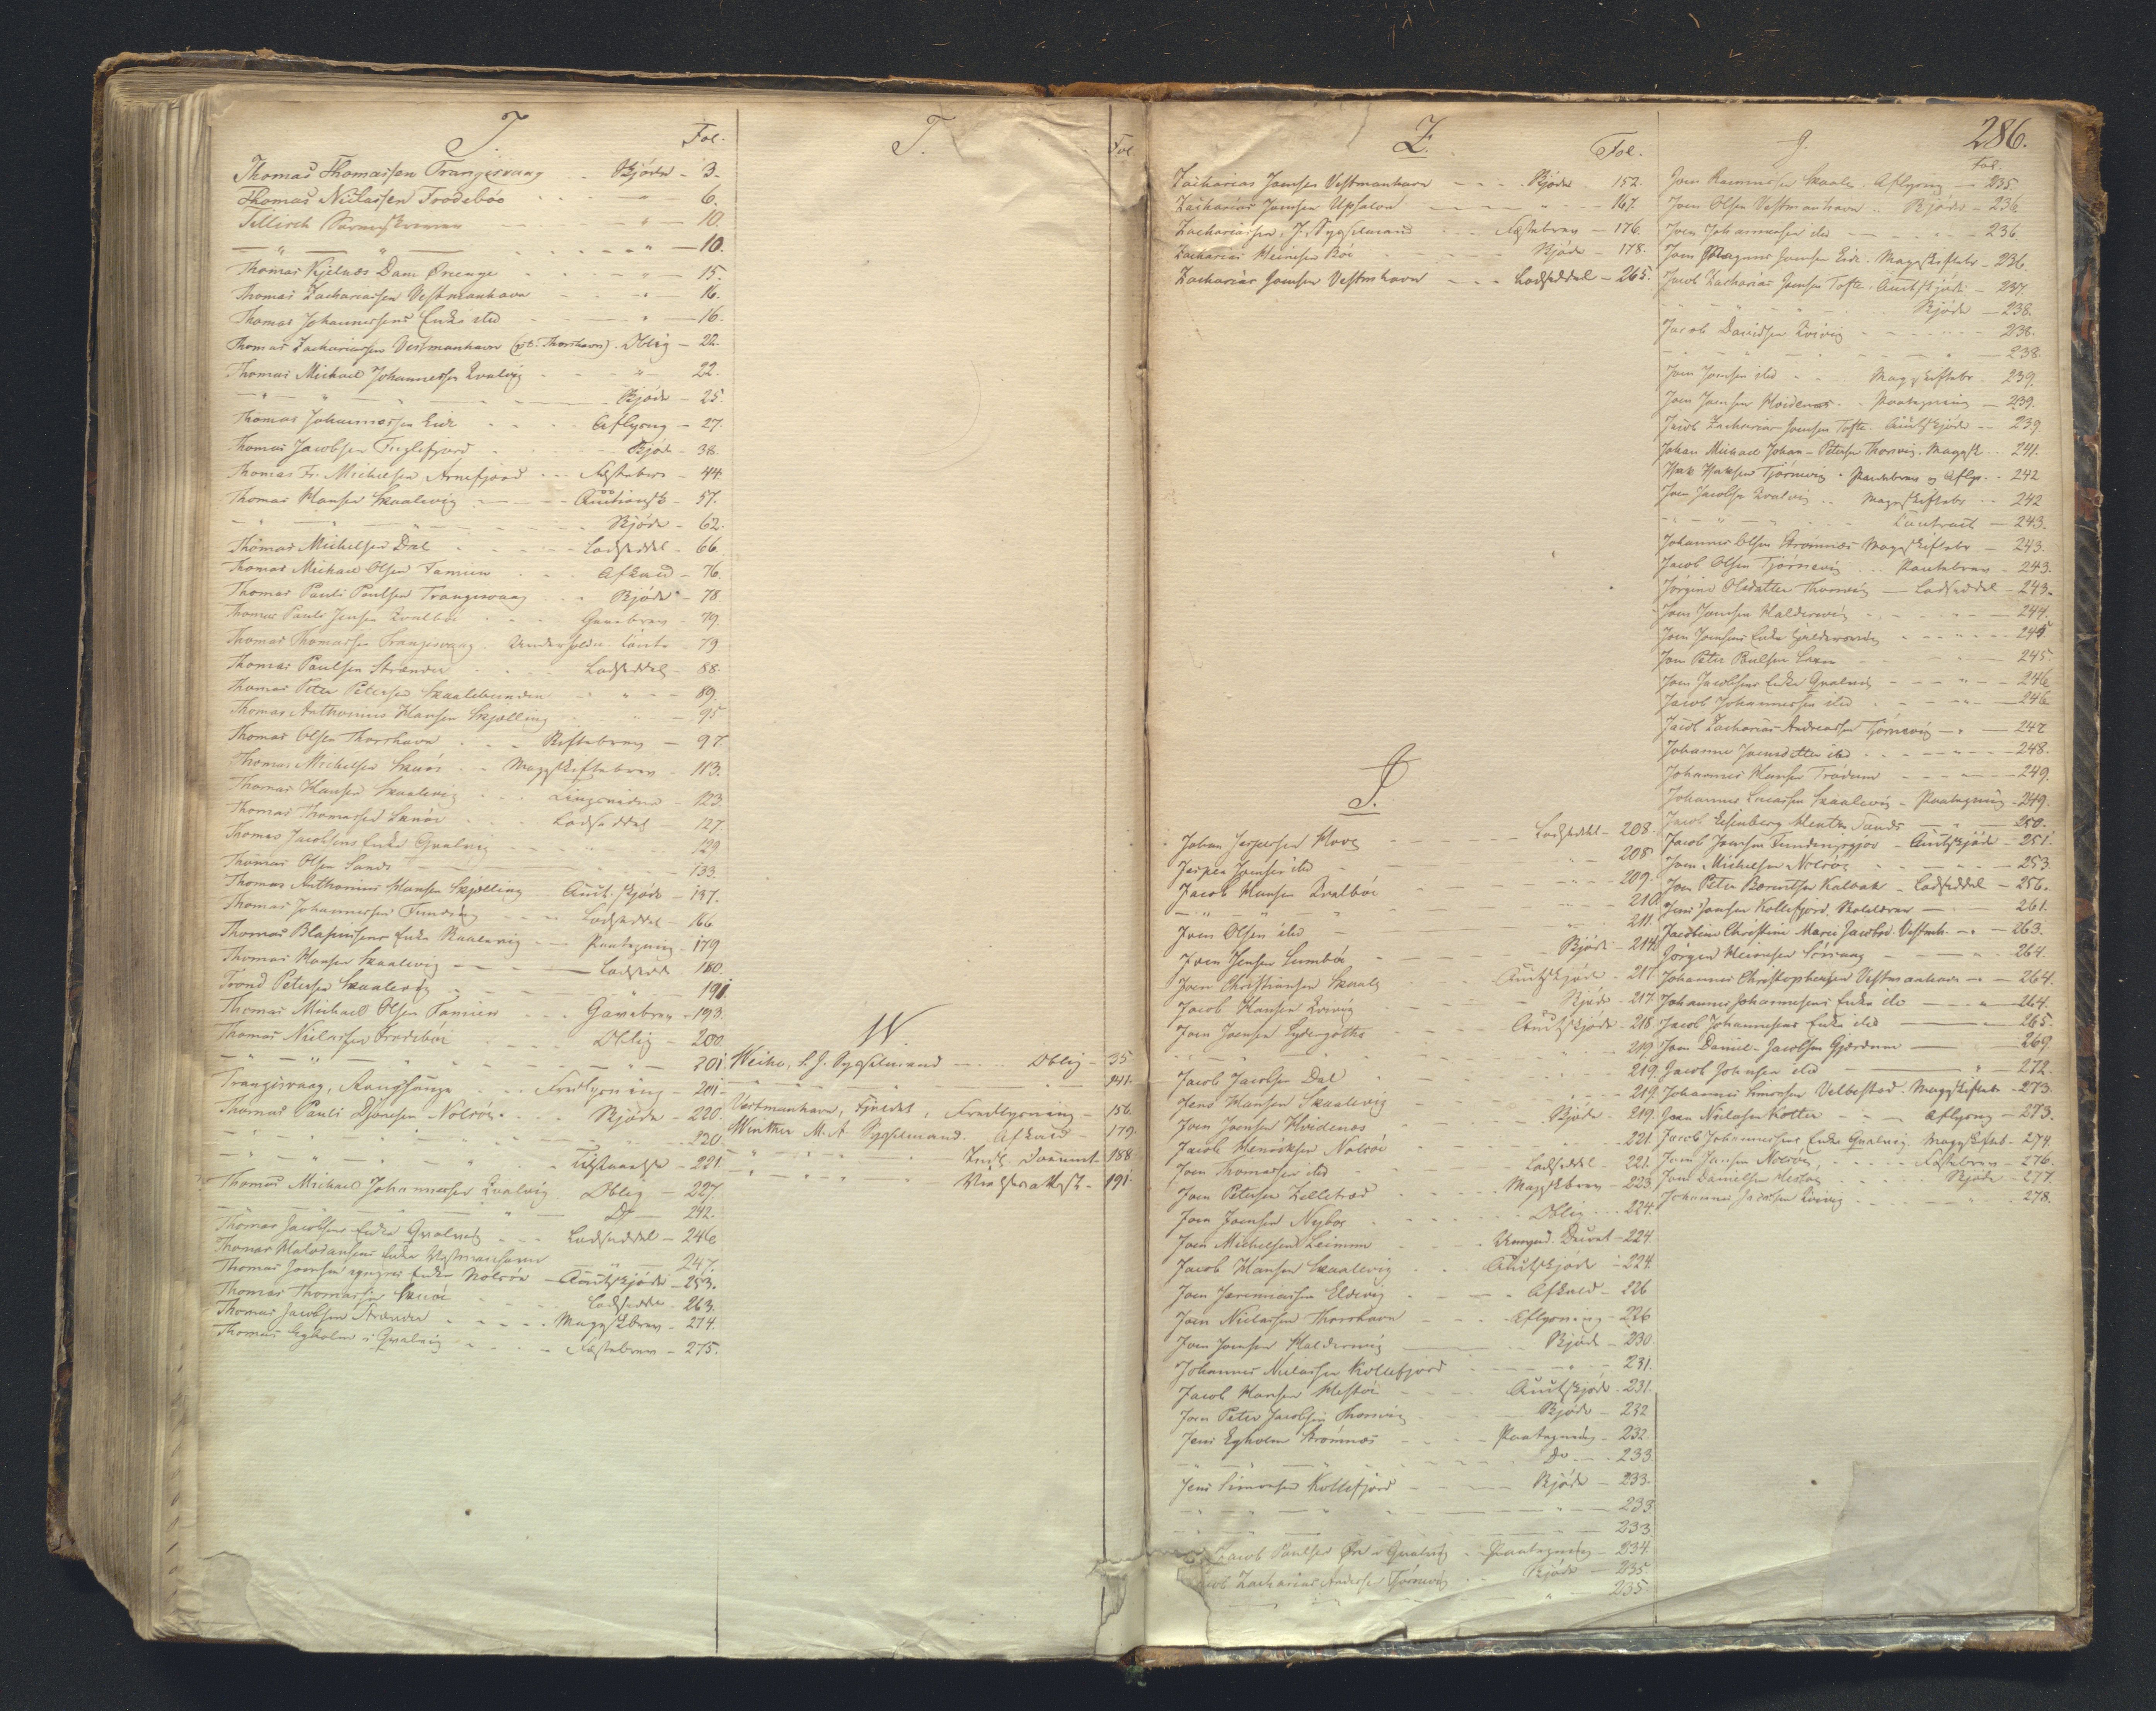 T.
Fol.
Thomas Thomassen Trangisvaag - - Skjøde - 3.
Thomas Niclassen Frodebøe - - - " 6.
Tillisch - - - " 10.
— " — " — - - - " — 10.
Thomas Kjelnæs Dam - - - " — 15.
Thomas Zachariassen Vestmanhavn - - - " — 16.
Thomas Johannessens Enke ibd - - - " — 16.
Thomas Zachariassen Vestmanhavn (pt. Thorshavn). Oblig — 22.
Thomas Michael Johannessen Qvalvig - - - " — 22.
— " — " — " — Skjøde - 25.
Thomas Johannessen Eide - - - Aflysng — 27.
Thomas Jacobsen Fuglefjord - - - Skjøde - 38.
Thomas Fr. Michelsen Arnefjord - - - Fæstebrev - 44.
Thomas Hansen Skaalevig - - - Auctionsk - 57.
— " — " — Skjøde - 62.
Thomas Michelsen Dal - - - Lodseddel - 66.
Thomas Michael Olsen Famien - - - Afkald - 76.
Thomas Pauli Poulsen Trangisvaag - - Skjøde - 78
Thomas Pauli Jensen Qvalbøe - - - Gavebrev - 79.
Thomas Thomassen Trangisvaag - Underholdn Contr - 79
Thomas Paulsen Strænder - - Lodseddel - 88.
Thomas Peter Petersen Skaalebunden - " - - 89.
Thomas Anthonius Hansen Skjælling - - " - 95
Thomas Olsen Thorshavn - - - Skiftebrev - 97.
Thomas Michelsen Skuøe - - Mageskiftebrev - 113.
Thomas Hansen Skaalevig - - - 123.
Thomas Thomassen Skuøe - - Lodseddel - 127
Thomas Jacobsens Enke Qvalvig - - - 129
Thomas Olsen Sands - - - 133
Thomas Anthonius Hansen Skjælling - Auct. skjøde - 137.
Thomas Johannessen Funding - - - Lodseddel - 166
Thomas Enke Skaalevig - - Paategning - 179
Thomas Hansen Skaalevig — — Lodsedd. 180.
Trond Petersen Skaalevig - - - 191.
Thomas Michael Olsen Famien - - - Gavebrev - 193.
Thomas Niclassen Frodebøe - - - Oblig - 200.
— " — " — " - 201.
Trangisvaag, - - Fredlysning - 201.
Thomas Pauli Djonesen Nolsøe - - Skjøde - 220.
— " — " — " - 220.
— " — " — " - 221.
Thomas Michael Johannessen Qvalvig. Oblig - 227.
— " — " — Do — 242.
Thomas Jacobsens Enke Qvalvig - - - Lodseddel - 246
Thomas Enke Vestmanhavn - " - 247.
Thomas Joensen yngres Enke Nolsøe - Auctskjøde - 253.
Thomas Thomassen Skuøe - - Lodseddel - 263.
Thomas Jacobsen Strænder - - - - Mageskbrev - 274.
Thomas Egholm i Qvalvig - - - Fæstebrev - 275.
T.
Fol
W.
Weihe, Sysselmand — . . Oblig - 35
— " — " — 141.
Vestmanhavn, Fjeldet, Fredlysning - 156.
Winther M. A. Sysselmand. Afkald - 179.
— " — " — - 188.
— " — " — - 191.
Z.
Fol.
Zacharias Joensen Vestmanhavn - - - Skjøde . 152.
Zacharias Joensen Upsalen - - - " 167.
Zachariassen, J. Sysselmand - - - Fæstebrev — 176.
Zacharias Heinesen - - - Skjøde - 178.
Zacharias Joensen Vestmhavn - - - Lodseddel - 265.
J.
Johan Jespersen Hove - - - Lodseddel - 208.
Jesper Joensen ibd - - - 208.
Jacob Hansen Qvalbøe - - - 209.
— " — " — 210.
Joen Olsen ibd - - - 211.
Joen Jensen Sumbøe - - - Skjøde - 214.
Joen Christiansen Skaale - - - Auctskjøde - 217.
Jacob Hansen Qvivig - - - Skjøde - 217.
Joen Joensen Sydregøthe - - - Auctskjøde - 218.
- " - " - " - 219.
Jacob Jacobsen Dal - - - 219.
Jens Hansen Skaalevig - - - 219.
Joen Joensen Hvidenæs - - - Skjøde - 219.
Jacob Henriksen Nolsøe - - - 221
Joen Thomassen ibd - - - Lodseddel - 221.
Joen Petersen Selletræd - - - Mageskbrev - 223.
Joen Joensen Nyboe - - - Oblig - 224.
Joen Michelsen Leimum - - - 224.
Jacob Hansen Skaalevig - - - Auctskjøde - 224.
Joen Jeremiassen Eldevig - - - Afkald - 226
Joen Niclassen Thorshavn - - - Aflysning - 226
Joen Joensen Haldersvig — Skjøde - 230.
Johannes Niclassen Kollefjord - - - 231.
Jacob Hansen Hestøe - - - Auctskjøde - 231.
Joen Peter Jacobsen Thorsvig - - - Skjøde - 232
Jens Egholm Strømnæs - - - Paategning - 232.
- " - " - " - Do - - 233
Jens Simonsen Kollefjord - - - Skjøde - 233.
- " - " - " - 233.
- " - " - " - 233.
Jacob Paulsen Øre Qvalvig - Paategning - 234.
Jacob Zacharias Andersen Tjørnevig - - Skjøde - 235.
- " - " - " - 235.
J.
286.
Fol.
Joen Rasmussen Skaale. Aflysning — 235.
Joen Olsen Vestmanhavn - Skjøde - 236
Joen Johannessen ibd - " - 236
Joen Magnus Joensen Eide. Mageskiftebr - 236.
Jacob Zacharias Joensen Tofte. Auctskjøde - 237.
- " - " - Skjøde — 238.
Jacob Davidsen Qvivig - - - " - 238.
- " - " - " — 238.
Joen Joensen ibd - - Mageskiftebr - 239.
Joen Joensen Hvidenæs - - Paategning — 239.
Jacob Zacharias Joensen Tofte. Auctskjøde - 239
Johan Michael Johan-Petersen Thorsvig. Magesk - - 241.
Isak Isaksen Tjørnevig - Pantebrev og Aflys. - 242
Joen Jacobsen Qvalvig - - Mageskiftebr - - 242
- " - " - Contract — 243.
Johannes Olsen Strømnæs Mageskiftebr — 243.
Jacob Olsen Tjørnevig - - - Pantebrev - 243.
Jørgine Olsdatter Thorsvig — Lodseddel - 243.
Joen Joensen Haldersvig - - - 244.
Joen Joensens Enke Gjelderevig - - - 245.
Jon Peter Poulsen - - - 245
Joen Jacobsens Enke Qvalvig - - - 246
Jacob Johannessen ibd - - - 246
Jacob Zacharias Andreassen Tjørnevig — " — 247
Johanne Joensdatter ibd - - - 248.
Johannes Hansen Trødum - - - 249.
Johannes Lucassen Skaalevig - Paategning - 249.
Jacob Sands - " - 250.
Jacob Joensen Fundingsgjov - Auctskjøde - 251.
Joen Michelsen Nolsøe - - - 253
Joen Peter Berentsen Kalbak - Lodseddel - 256.
Jens Joensen Kollefjord. - 261.
Jacobine Christine Marie Jacobsd. Vestmh. - " - 263.
Jørgen Heinesen Sørvaag - - " - 264.
Johannes Christophersen Vestmanhavn - " - 264.
Johannes Johannesens Enke ibd — " — 264.
Jacob Johannesens Enke ibd — " 265.
Joen Daniel Jacobsen Gjerdum — " 269
Jacob Johnsen ibd — " — 272.
Johannes Simonsen Velbestad. Mageskiftebr - 273.
Joen Niclasen Kolter - - Aflysng - 273.
Jacob Johannessens Enke Qvalvig. Mageskftebr - 274.
Joen Jensen Nolsøe - - - Fæstebrev - 276.
Joen Danielsen Hestøe - - - Skjøde - 277.
Johannes Jacobsen Qvivig - - - 278.